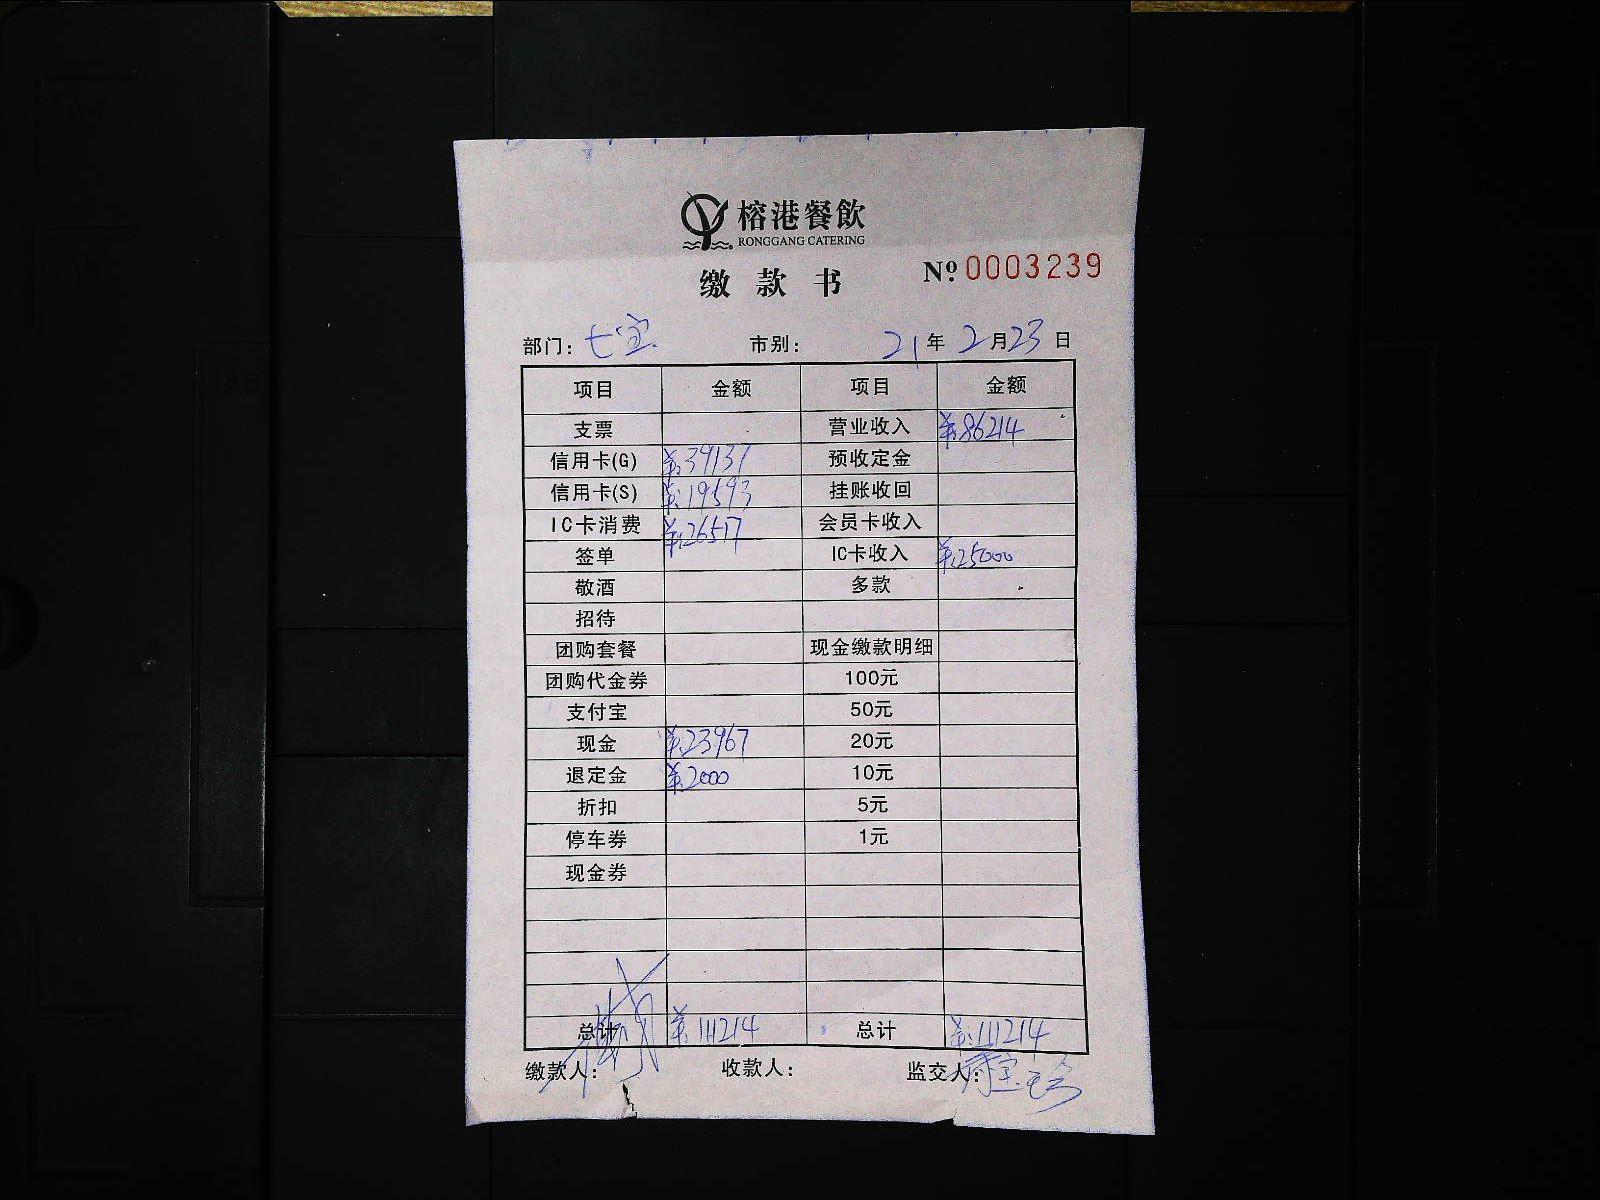 榕港餐飲
RONGGANG CATERING
缴款书 Nº 0003239
部门: 七宝 市别: 21年2月23日
项目 金额 项目 金额
支票 营业收入 ¥:86214
信用卡(G) ¥:39137 预收定金
信用卡(S) ¥:19593 挂账收回
IC卡消费 ¥:26517 会员卡收入
签单 IC卡收入 ¥:25000
敬酒 多款
招待
团购套餐 现金缴款明细
团购代金券 100元
支付宝 50元
现金 ¥:23967 20元
退定金 ¥:2000 10元
折扣 5元
停车券 1元
现金券
总计 ¥:111214 总计 ¥:111214
缴款人: 收款人: 监交人: